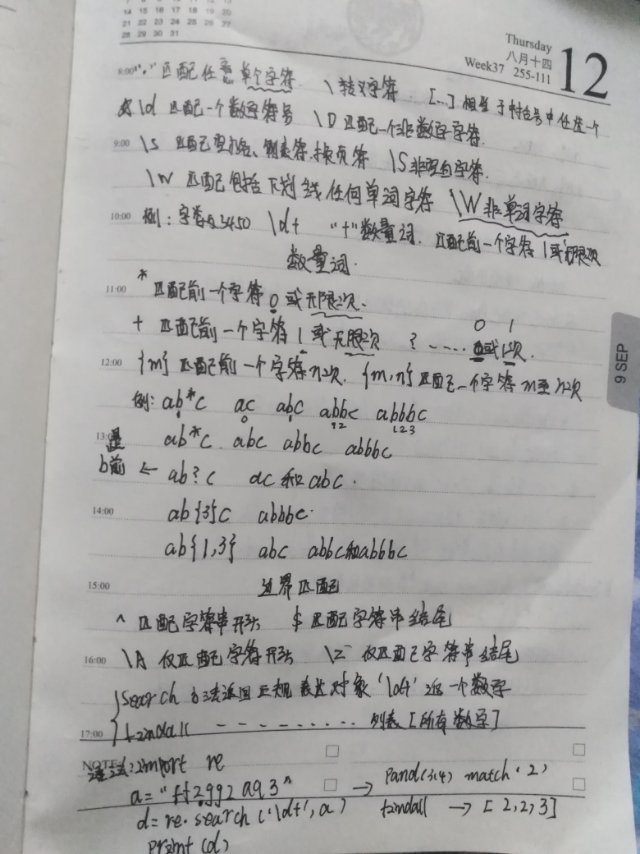 14 15 16 17 18 19 20
21 22 23 24 25 26 27
28 29 30 31
Thursday
八月十四
Week37 255-111
12
8:00 "." 匹配任意单个字符 \转义字符 [...] 相当于 括号中任意一个
\d 匹配一个数字符号 \D 匹配一个非数字字符
9:00 \s 匹配空格、制表符、换页符 \S 非空白字符.
\w 匹配包括下划线任何单词字符 \W 非单词字符
10:00 例: 3450 \d+ "+"数量词. 匹配前一个字符1或无限次
数量词.
11:00 * 匹配前一个字符0或无限次.
+ 匹配前一个字符1或无限次 ? ..... 0或1次.
0 1
12:00 {m} 匹配前一个字符m次. {m,n} 匹配一个字符m至n次
例: ab*c ac abc abbc abbbc
0 1 1 2 1 2 3
13:00 ab*c abc abbc abbbc
b前 ← ab?c ac 和 abc.
14:00 ab{3}c abbbc.
ab{1,3} abc abbc和abbbc
15:00 边界匹配
^ 匹配字符串开头 $ 匹配字符串结尾
16:00 \A 仅匹配字符开头 \Z 仅匹配字符串结尾
search 方法返回正则表达对象 '\d+' 一个数字
17:00 findall - - - - - - - - - 列表[所有数字]
NOTE
import re
a= "ff2992a93" → match
d=re.search('\d+',a) findall → [2,2,3]
print(d)
9 SEP